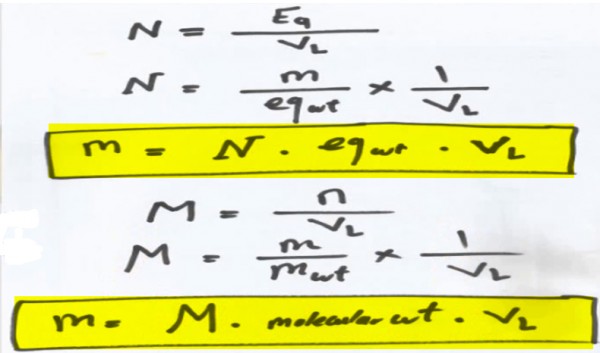 N = Eq / V_L
N = m / eq wt × 1 / V_L
m = N . eq wt . V_L
M = n / V_L
M = m / m wt × 1 / V_L
m = M . molecular wt . V_L